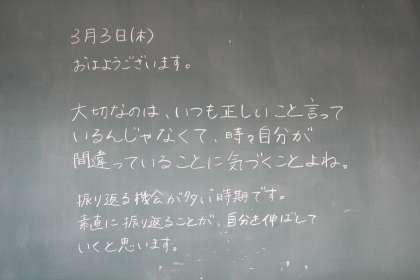 3月3日(木)
おはようございます。
大切なのは、いつも正しいこと言って
いるんじゃなくて、時々自分が
間違っていることに気づくことよね。
振り返る機会が多い時期です。
素直に振り返ることが、自分を伸ばして
いくと思います。